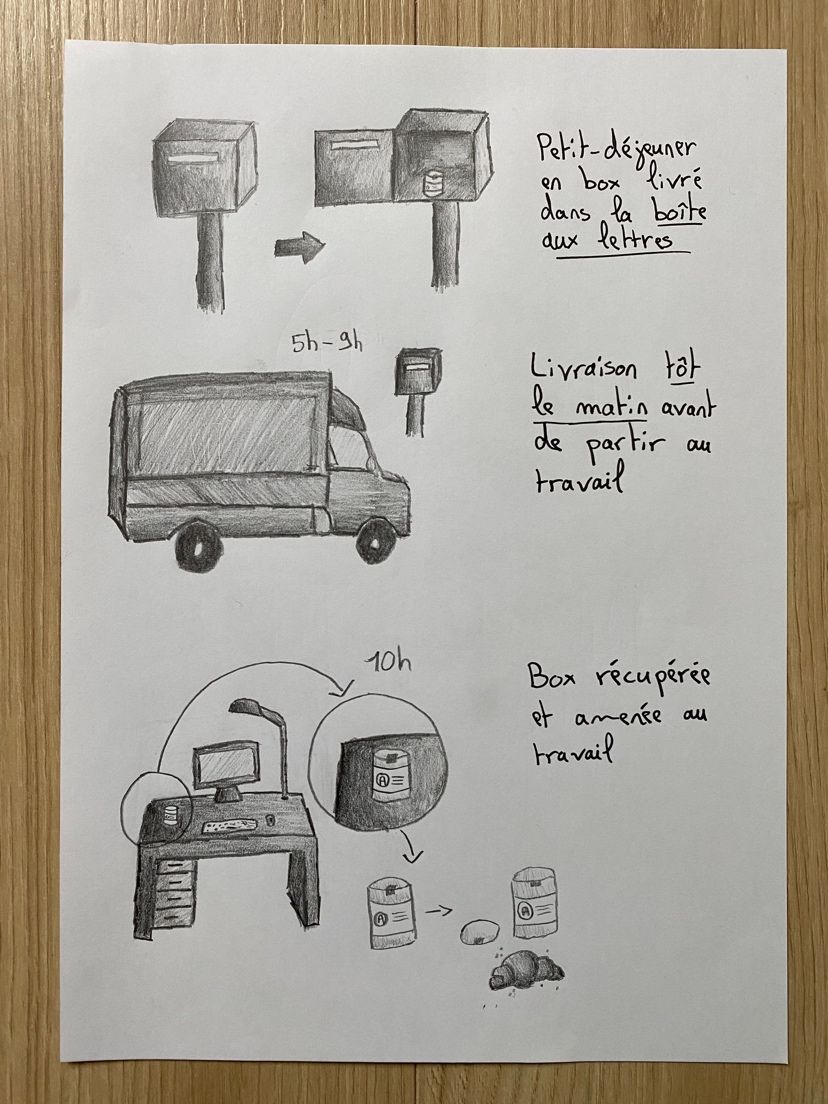 Petit-déjeuner
en box livré
dans la boîte
aux lettres
5h-9h
Livraison tôt
le matin avant
de partir au
travail
10h
Box récupérée
et amenée au
travail
A
A
A